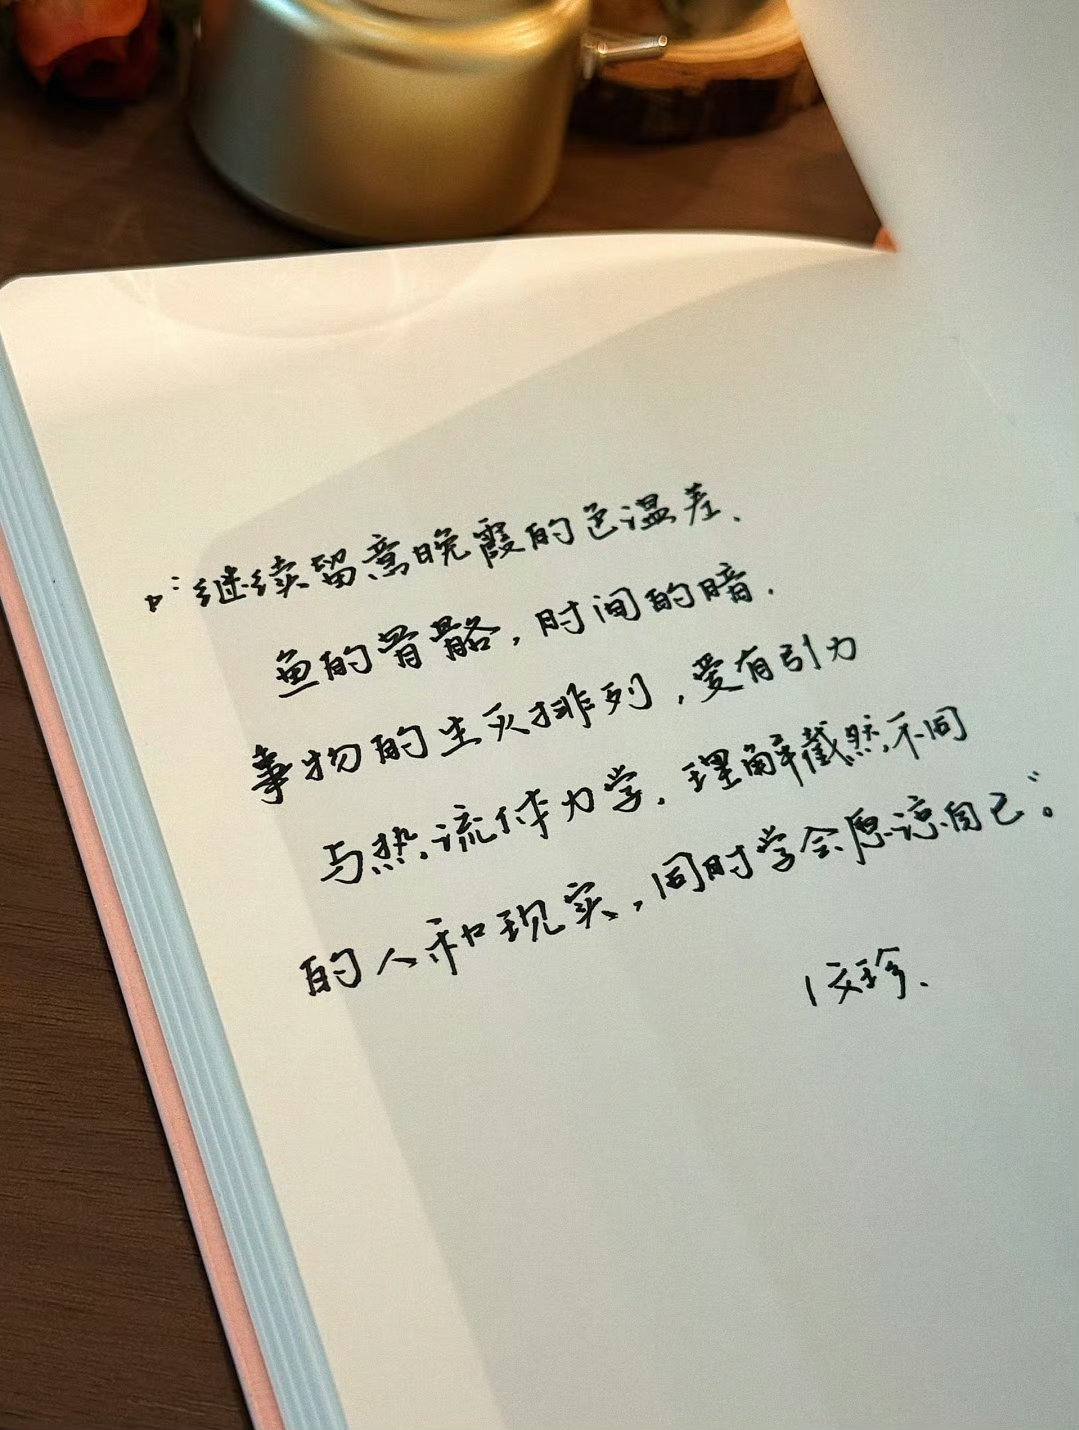 “继续留意晚霞的色温差、
鱼的骨骼，时间的暗．
事物的生灭排列，爱有引力
与热.流体力学．理解截然不同
的人和现实，同时学会原谅自己”。
/文珍．